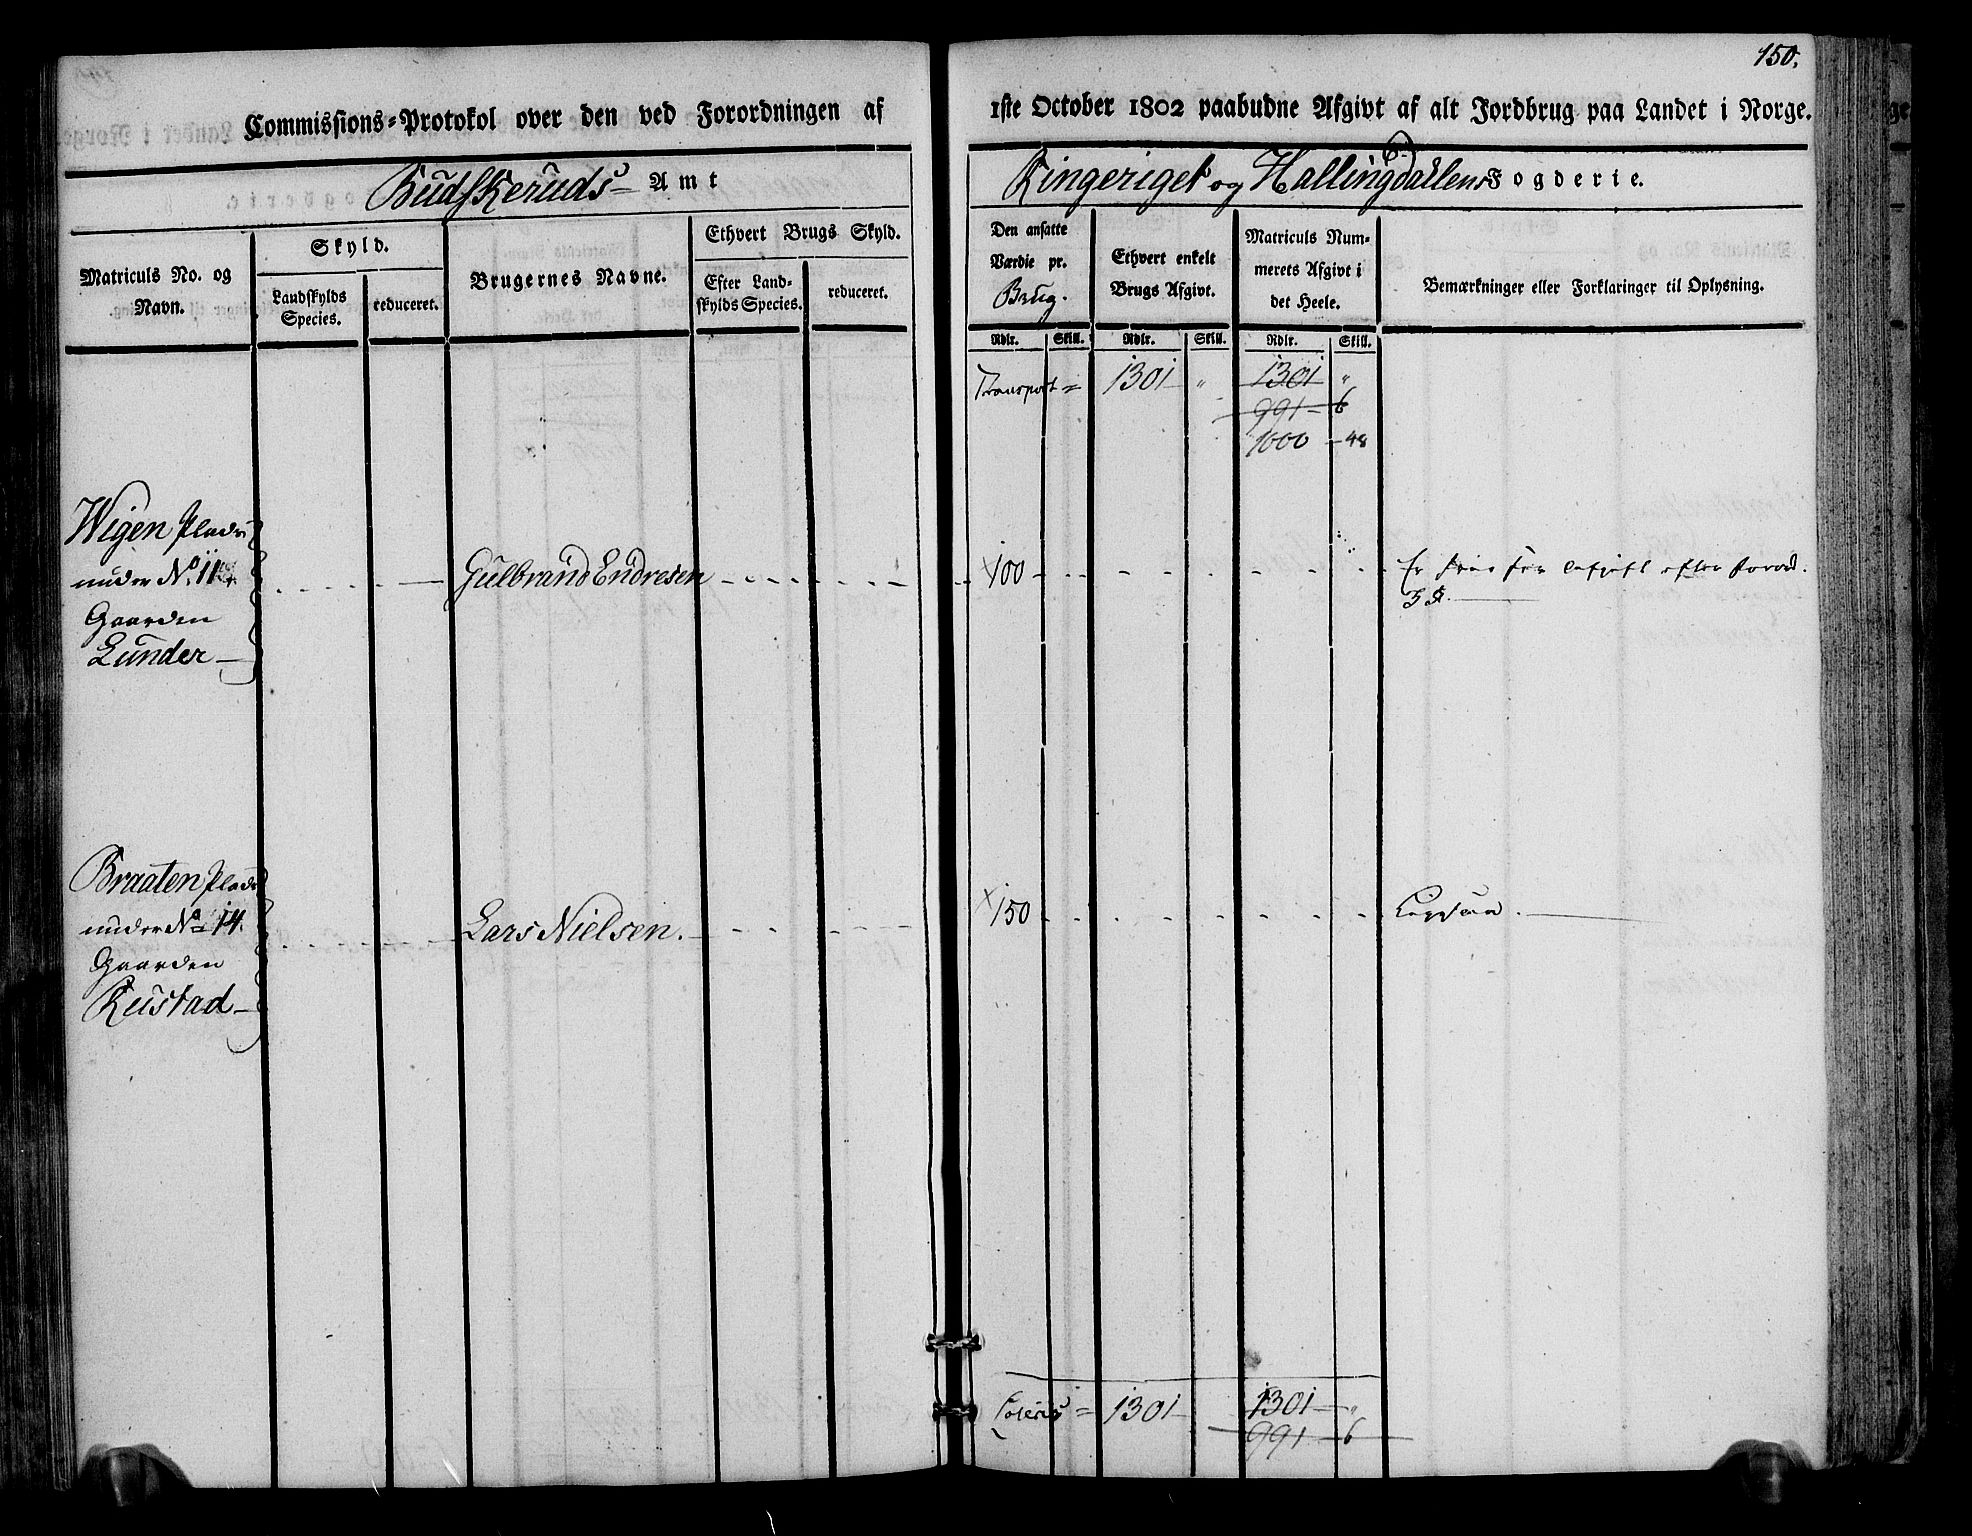 150.
Commissions-Protokol over den ved Forordningen af 1ste October 1802 paabudne Afgivt af alt Jordbrug paa Landet i Norge.
Budskeruds Amt
Ringeriget og Hallingdallens Fogderie.
Matriculs No. og Navn.
Skyld.
Landskylds Species.
reduceret.
Brugernes Navne.
Ethvert Brugs Skyld.
Efter Landskylds Species.
reduceret.
Den ansatte Værdie pr. Brug.
Ethvert enkelt Brugs Afgivt.
Matriculs Nummerets Afgivt i det Heele.
Bemærkninger eller Forklaringer til Oplysning.
Rdlr. Skill. Rdlr. Skill. Rdlr. Skill.
Transport = 1301 " 1301 "
991 - 6
1000 - 48
Wigen Plads
under No. 11
Gaarden
Lunder
Gulbrand Endresen
100
Er frie for Afgift efter Forord.
3 §.
Braaten Plads
under No. 14.
Gaarden
Rustad
Lars Nielsen.
150
Ligesaa.
Lateris = 1301 1301 "
991 - 6